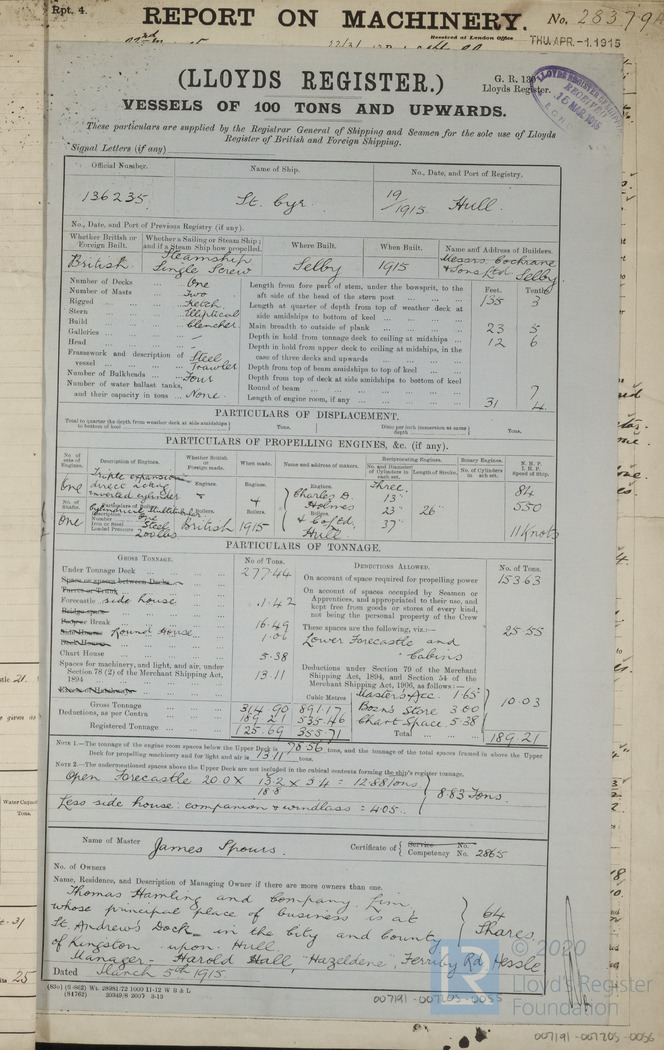 Rpt. 4.
REPORT ON MACHINERY.
No. 283794
Received at London Office
THU. APR. -1. 1915
(LLOYDS REGISTER.)
G. R. 13
Lloyds Register.
VESSELS OF 100 TONS AND UPWARDS.
LLOYD'S REGISTER
RECEIVED
16 MAR 1915
These particulars are supplied by the Registrar General of Shipping and Seamen for the sole use of Lloyds
Register of British and Foreign Shipping.
Signal Letters (if any)
Official Number. Name of Ship. No., Date, and Port of Registry.
136235. St. Cyr. 19/1915 Hull.
No., Date, and Port of Previous Registry (if any).
Whether British or Foreign Built. Whether a Sailing or Steam Ship; and if a Steam Ship how propelled. Where Built. When Built. Name and Address of Builders.
British Steamship Single Screw Selby 1915 Messrs. Cochrane & Sons Ltd Selby
Number of Decks ... One
Number of Masts ... Two
Rigged ... Ketch
Stern ... Elliptical
Build ... Clencher
Galleries ... –
Head ... –
Framework and description of vessel ... Steel Trawler
Number of Bulkheads ... Four
Number of water ballast tanks, and their capacity in tons ... None.
Feet. Tenths
Length from fore part of stem, under the bowsprit, to the aft side of the head of the stern post ... 135 3
Length at quarter of depth from top of weather deck at side amidships to bottom of keel
Main breadth to outside of plank ... 23 5
Depth in hold from tonnage deck to ceiling at midships ... 12 6
Depth in hold from upper deck to ceiling at midships, in the case of three decks and upwards
Depth from top of beam amidships to top of keel
Depth from top of deck at side amidships to bottom of keel
Round of beam ... 7
Length of engine room, if any ... 31 4
PARTICULARS OF DISPLACEMENT.
Total to quarter the depth from weather deck at side amidships to bottom of keel Tons. Ditto per inch immersion at same depth Tons.
PARTICULARS OF PROPELLING ENGINES, &c. (if any).
No. of sets of Engines. Description of Engines. Whether British or Foreign made. When made. Name and address of makers. Reciprocating Engines. No. and Diameter of Cylinders in each set. Length of Stroke. Rotary Engines. No. of Cylinders in each set. N. H. P. I. H. P. Speed of Ship.
One Triple expansion direct acting inverted cylinder
Engines. Engines. Engines.
Charles D. Holmes & Co Ltd. Hull
Three. 13" 23" 37" 26"
84
550
11 Knots
No. of Shafts. Particulars of Boilers. Boilers. Boilers. Boilers.
One Description Cylindrical Multitubular
Number One
Iron or Steel Steel
Loaded Pressure 200 lbs British 1915
PARTICULARS OF TONNAGE.
GROSS TONNAGE. No. of Tons. DEDUCTIONS ALLOWED. No. of Tons.
Under Tonnage Deck ... 277.44
Space or spaces between Decks
Turret or Trunk
Forecastle side house ... 1.42
Bridge space
Poop or Break ... 16.49
Side Houses Round House ... 1.06
Deck Houses
Chart House ... 5.38
Spaces for machinery, and light, and air, under Section 78 (2) of the Merchant Shipping Act, 1894 ... 13.11
Excess of Hatchways
Cubic Metres
Gross Tonnage 314.90 891.17
Deductions, as per Contra 189.21 535.46
Registered Tonnage 125.69 355.71
On account of space required for propelling power 153.63
On account of spaces occupied by Seamen or Apprentices, and appropriated to their use, and kept free from goods or stores of every kind, not being the personal property of the Crew
These spaces are the following, viz:— 25.55
Lower Forecastle and Cabins
Deductions under Section 79 of the Merchant Shipping Act, 1894, and Section 54 of the Merchant Shipping Act, 1906, as follows:—
Master's Acc. 1.65
Bosn's Store 3.00
Chart Space. 5.38
10.03
Total ... 189.21
NOTE 1.—The tonnage of the engine room spaces below the Upper Deck is 78.56 tons, and the tonnage of the total spaces framed in above the Upper
Deck for propelling machinery and for light and air is 13.11 tons.
NOTE 2.—The undermentioned spaces above the Upper Deck are not included in the cubical contents forming the ship's register tonnage.
Open Forecastle 20.0 X 13.2 X 5.4 = 12.88 tons
18.8
Less side house: companion & windlass = 4.05.
8.83 Tons.
Name of Master James Spours. Certificate of Service No. Competency No. 2865
No. of Owners
Name, Residence, and Description of Managing Owner if there are more owners than one.
Thomas Hamling and Company Lim.
whose principal place of business is at
St. Andrew's Dock in the City and County
of Kingston upon Hull
64 Shares
Manager - Harold Hall, "Hazeldene", Ferriby Rd Hessle
Dated March 5th 1915
(83o) (9-862) Wt. 28981/72 1000 11-12 W B & L
(84762) 20349/8 2000 3-13
© 2020
Lloyd's Register
Foundation
007191-007205-0055
007191-007205-0056